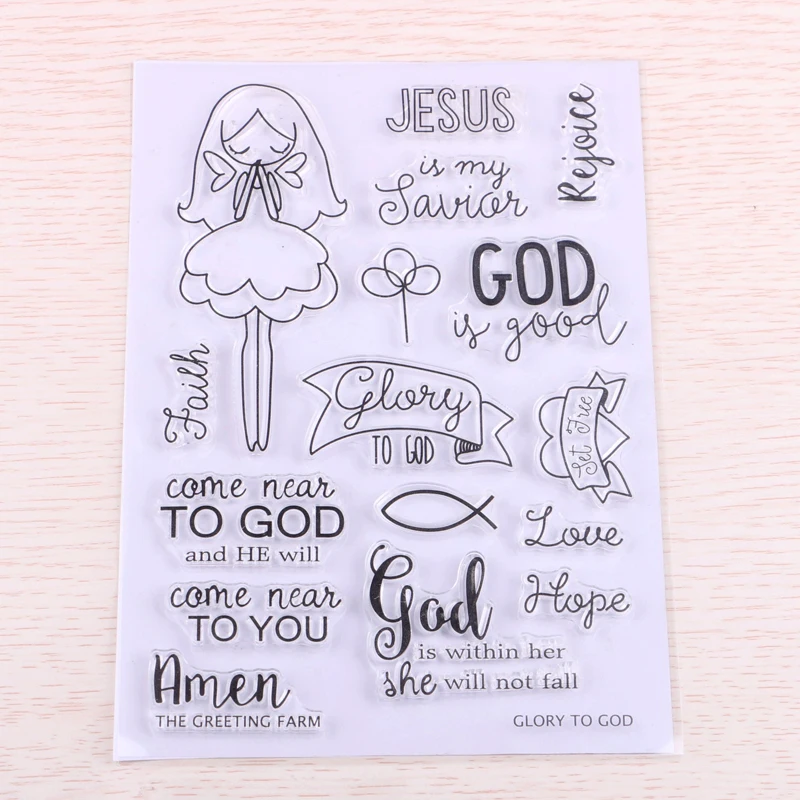 JESUS
is my
Savior
Rejoice
GOD
is good
Faith
Glory
TO GOD
Set Free
come near
TO GOD
and HE will
come near
TO YOU
Love
Hope
God
is within her
she will not fall
Amen
THE GREETING FARM
GLORY TO GOD